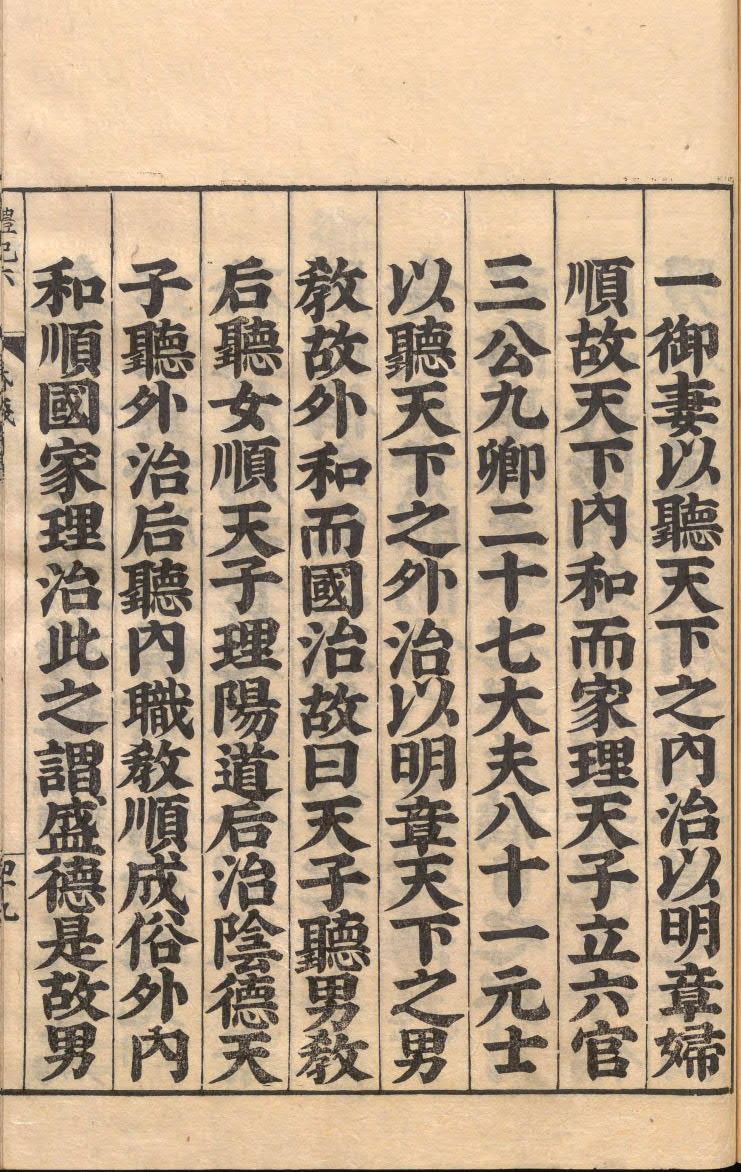 一御妻以聽天下之內治以明章婦
順故天下內和而家理天子立六官
三公九卿二十七大夫八十一元士
以聽天下之外治以明章天下之男
教故外和而國治故曰天子聽男教
后聽女順天子理陽道后治陰德天
子聽外治后聽內職教順成俗外內
和順國家理治此之謂盛德是故男